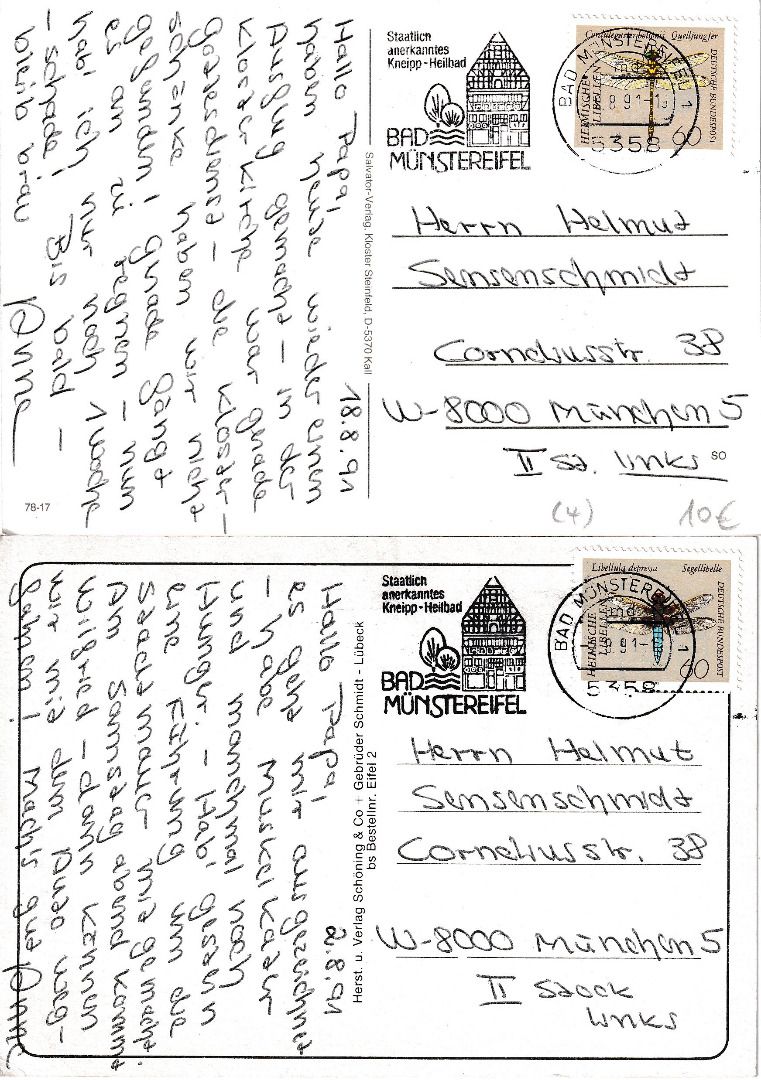 Staatlich
anerkanntes
Kneipp-Heilbad
BAD
MÜNSTEREIFEL
Cordulegaster boltoni Quelljungfer
HEIMISCHE
LIBELLEN
DEUTSCHE BUNDESPOST
60
BAD MÜNSTEREIFEL
1
5358
Herrn Helmut
Sensenschmidt
Corneliusstr. 38
W-8000 München 5
II St. links
SO
(4) 10€
18.8.91
Hallo Papa!
haben heute wieder einen
Ausflug gemacht - in der
Klosterkirche war grade
Gottesdienst - die Kloster-
schenke haben wir nicht
gegangen! Grade fängt
es an zu regnen - nun
hab' ich nur noch 1 Woche
- schade! Bis bald -
bleib brav
Anna
Salvator-Verlag, Kloster Steinfeld, D-5370 Kall
78-17
Staatlich
anerkanntes
Kneipp-Heilbad
BAD
MÜNSTEREIFEL
Libellula depressa Segellibelle
HEIMISCHE
LIBELLEN
DEUTSCHE BUNDESPOST
60
BAD MÜNSTEREIFEL
1
5358
Herrn Helmut
Sensenschmidt
Corneliusstr. 38
W-8000 München 5
II Stock
links
2.8.91
Hallo Papa!
es geht mir ausgezeichnet
- habe Muskelkater
und manchmal noch
Hunger. - Hab' gestern
eine Führung um die
Stadtmauer mitgemacht.
Am Samstag abend kommt
Wilfried - dann können
wir mit dem Auto weg-
fahren! Mach's gut! Anna
Herst. u. Verlag Schöning & Co + Gebrüder Schmidt - Lübeck
bs Bestellnr. Eifel 2